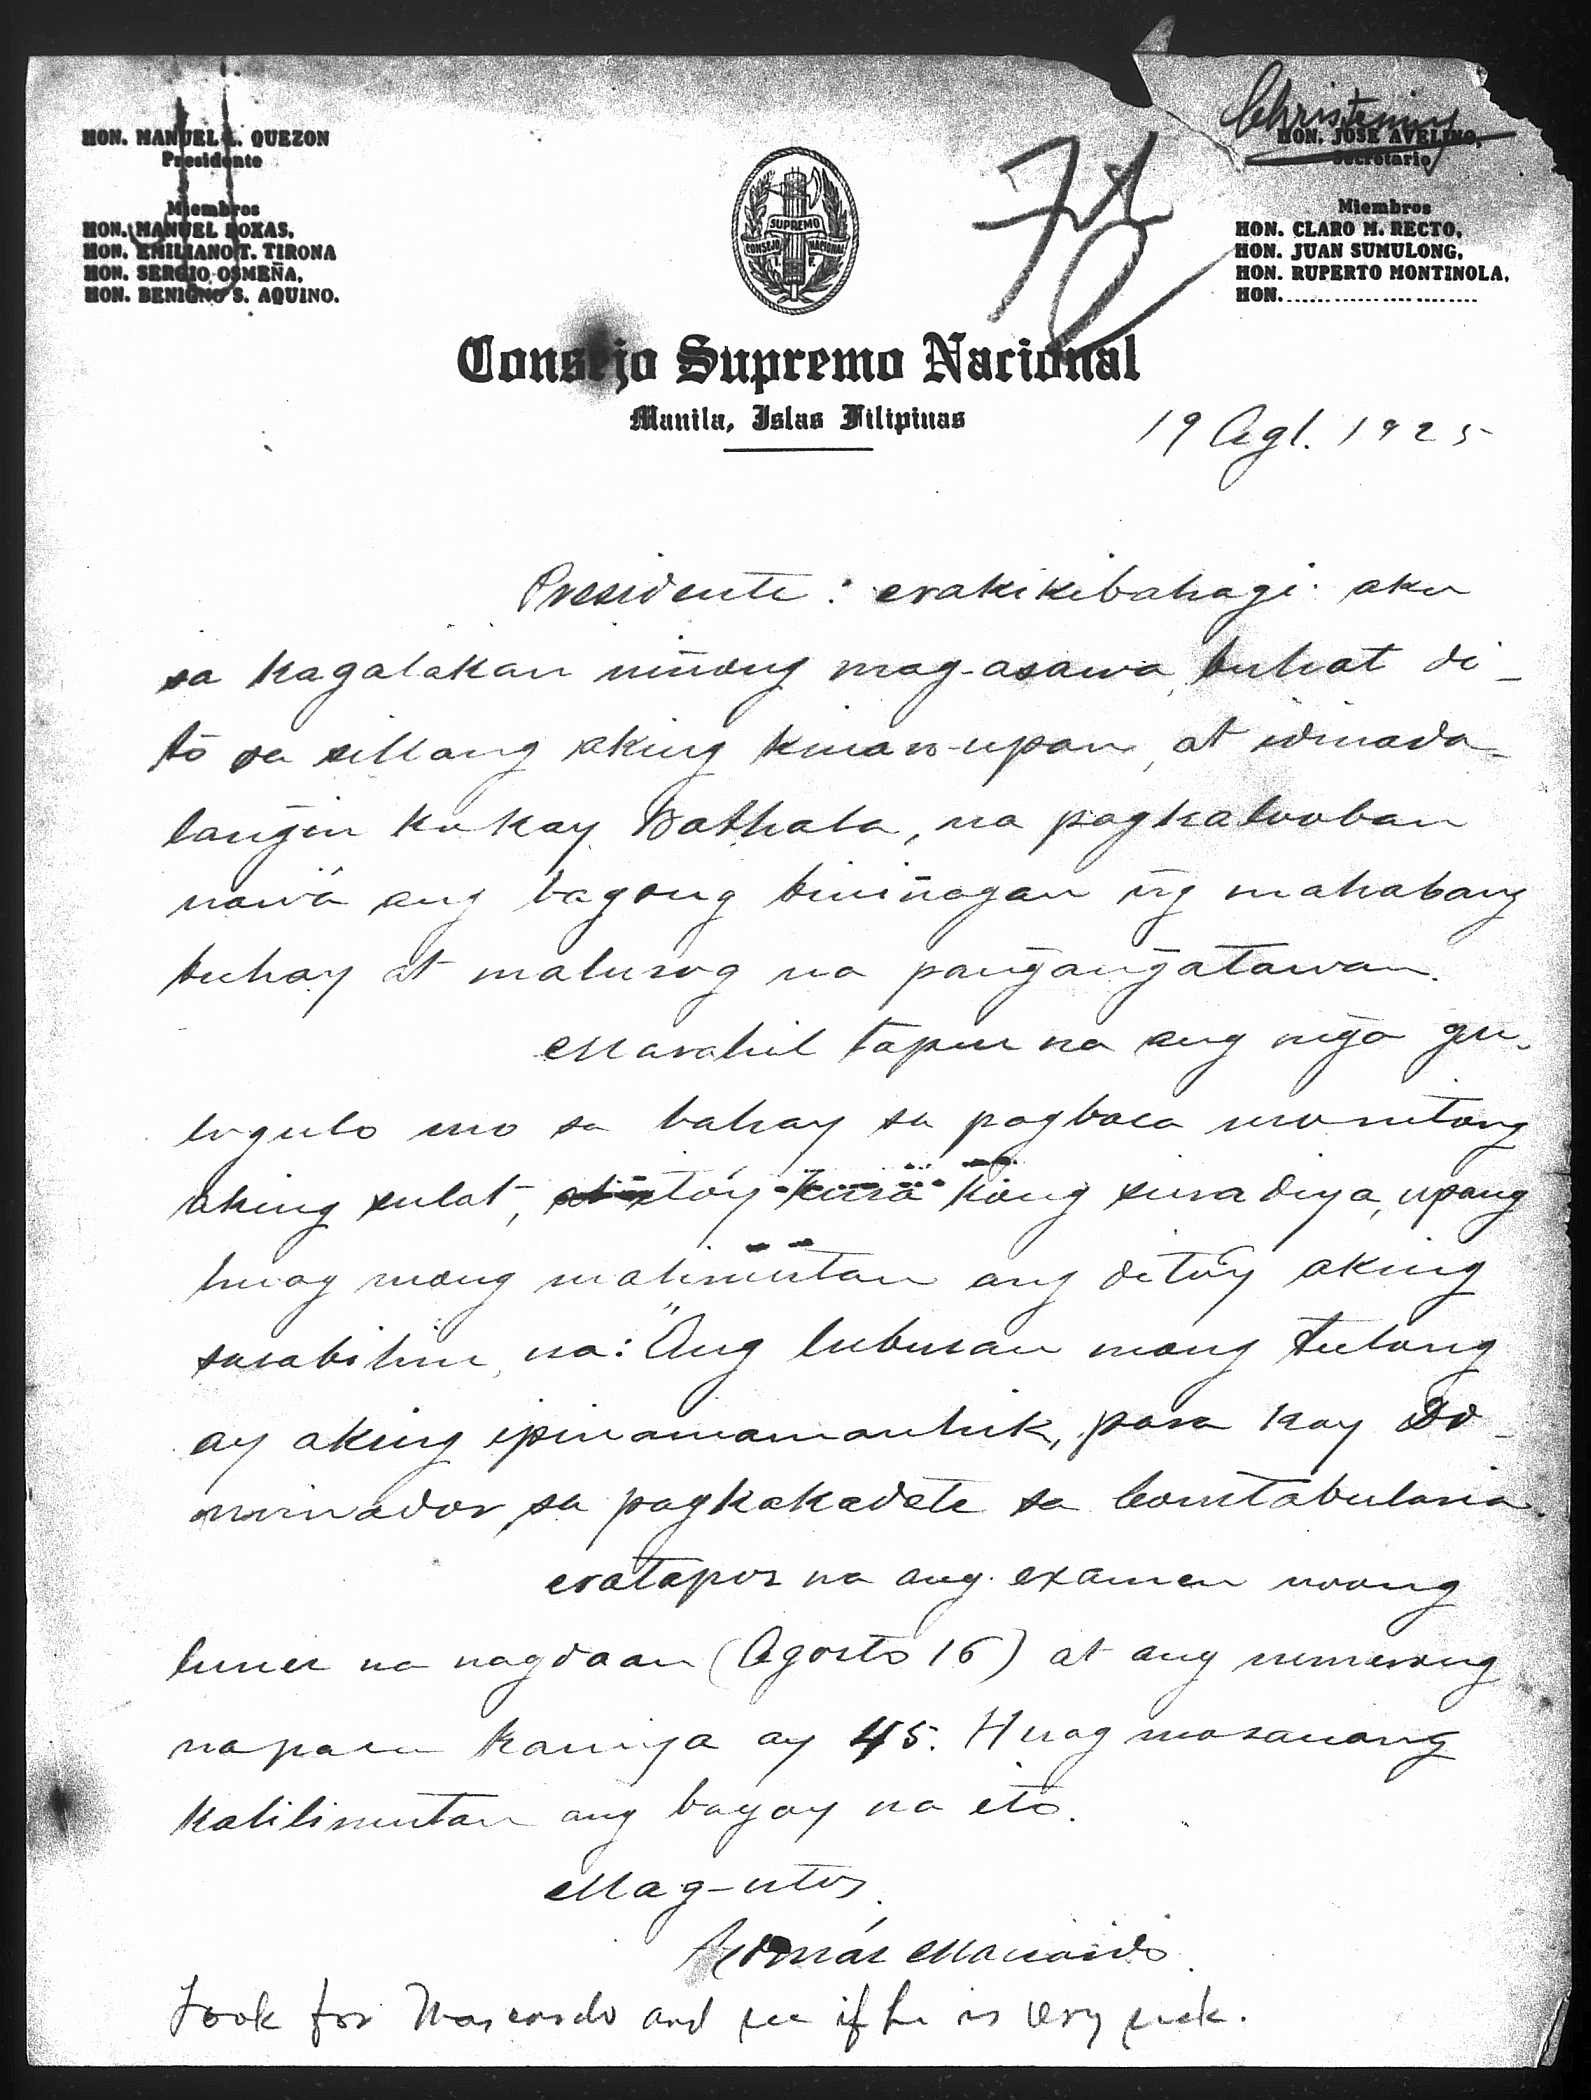 Christening
HON. MANUEL L. QUEZON
Presidente
HON. JOSE AVELINO,
Secretario
Miembros
HON. MANUEL ROXAS,
HON. EMILIANO T. TIRONA
HON. SERGIO OSMEÑA,
HON. BENIGNO S. AQUINO.
Miembros
HON. CLARO M. RECTO,
HON. JUAN SUMULONG,
HON. RUPERTO MONTINOLA,
HON.
SUPREMO
CONSEJO NACIONAL
I. F.
Consejo Supremo Nacional
Manila, Islas Filipinas
19 Agt. 1925
Presidente: Nakikibahagi ako
sa kagalakan ninong mag-asawa, buhat di-
to sa sillang aking kinau-upan, at idinada-
langin ko kay Bathala, na pagkalooban
nawâ ang bagong bininagan ñg mahabang
buhay at malusog na pangangatawan.
Marahil tapus na ang mga gu-
logulo mo sa bahay sa pagbasa mo nitong
aking sulat, kong sinadiya, upang
huag mong malimutan ang dito'y aking
sasabihin, na: "Ang lubusan mong tulong
ay aking ipinamamanhik, para kay Do-
minador, sa pagkakadete sa Constabularia.
Natapos na ang examen noong
lunes na nagdaan (Agosto 16) at ang numerong
napasa kaniya ay 45. Huag mo sanang
kalilimutan ang bagay na ito.
Mag-utos
Tomás
Look for Mascardo and see if he is very sick.